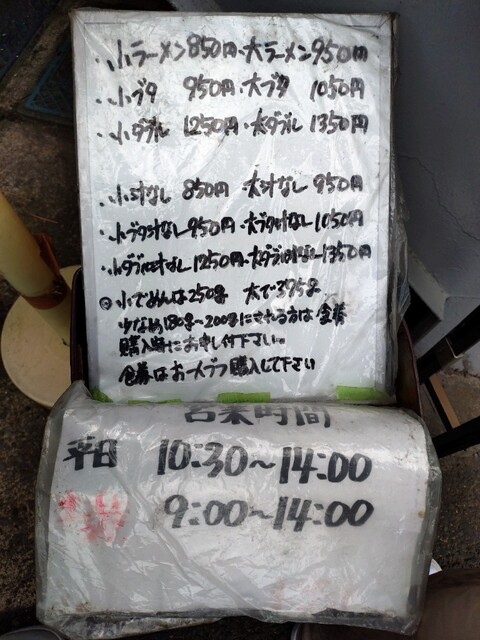 ・小ラーメン850円・大ラーメン950円
・小ブタ 950円・大ブタ 1050円
・小ダブル 1250円・大ダブル 1350円
・小汁なし 850円 大汁なし 950円
・小ブタ汁なし950円・大ブタ汁なし1050円
・小ダブル汁なし1250円・大ダブル汁なし1350円
◎小でめんは250g 大で375g
少なめ180g〜200gにされる方は食券
購入時にお申し付下さい。
食券はお一人づつ購入して下さい
営業時間
平日 10:30〜14:00
9:00〜14:00